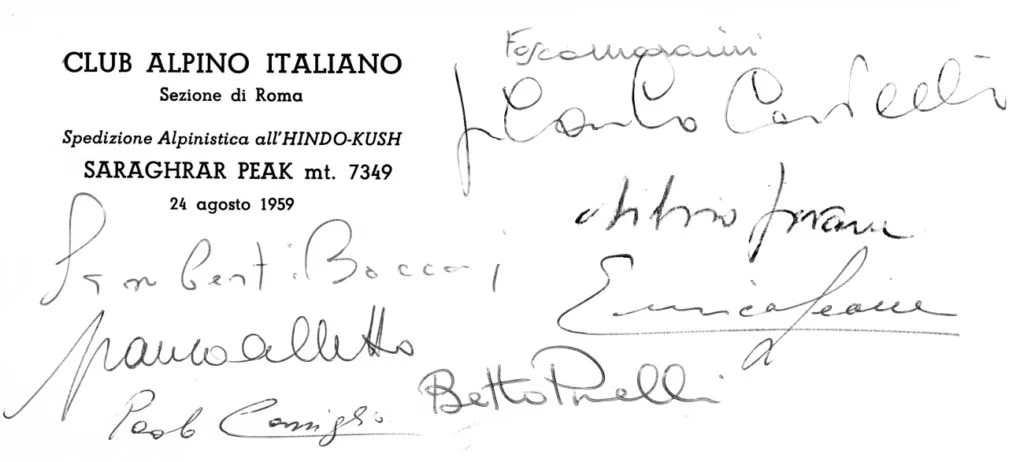 CLUB ALPINO ITALIANO
Sezione di Roma
Spedizione Alpinistica all'HINDO-KUSH
SARAGHRAR PEAK mt. 7349
24 agosto 1959
Fosco Maraini
Giancarlo Castelli
Silvio Jovane
Enrico Leone
Lamberti Bocconi
Franco Alletto
Paolo Consiglio
Betto Pinelli